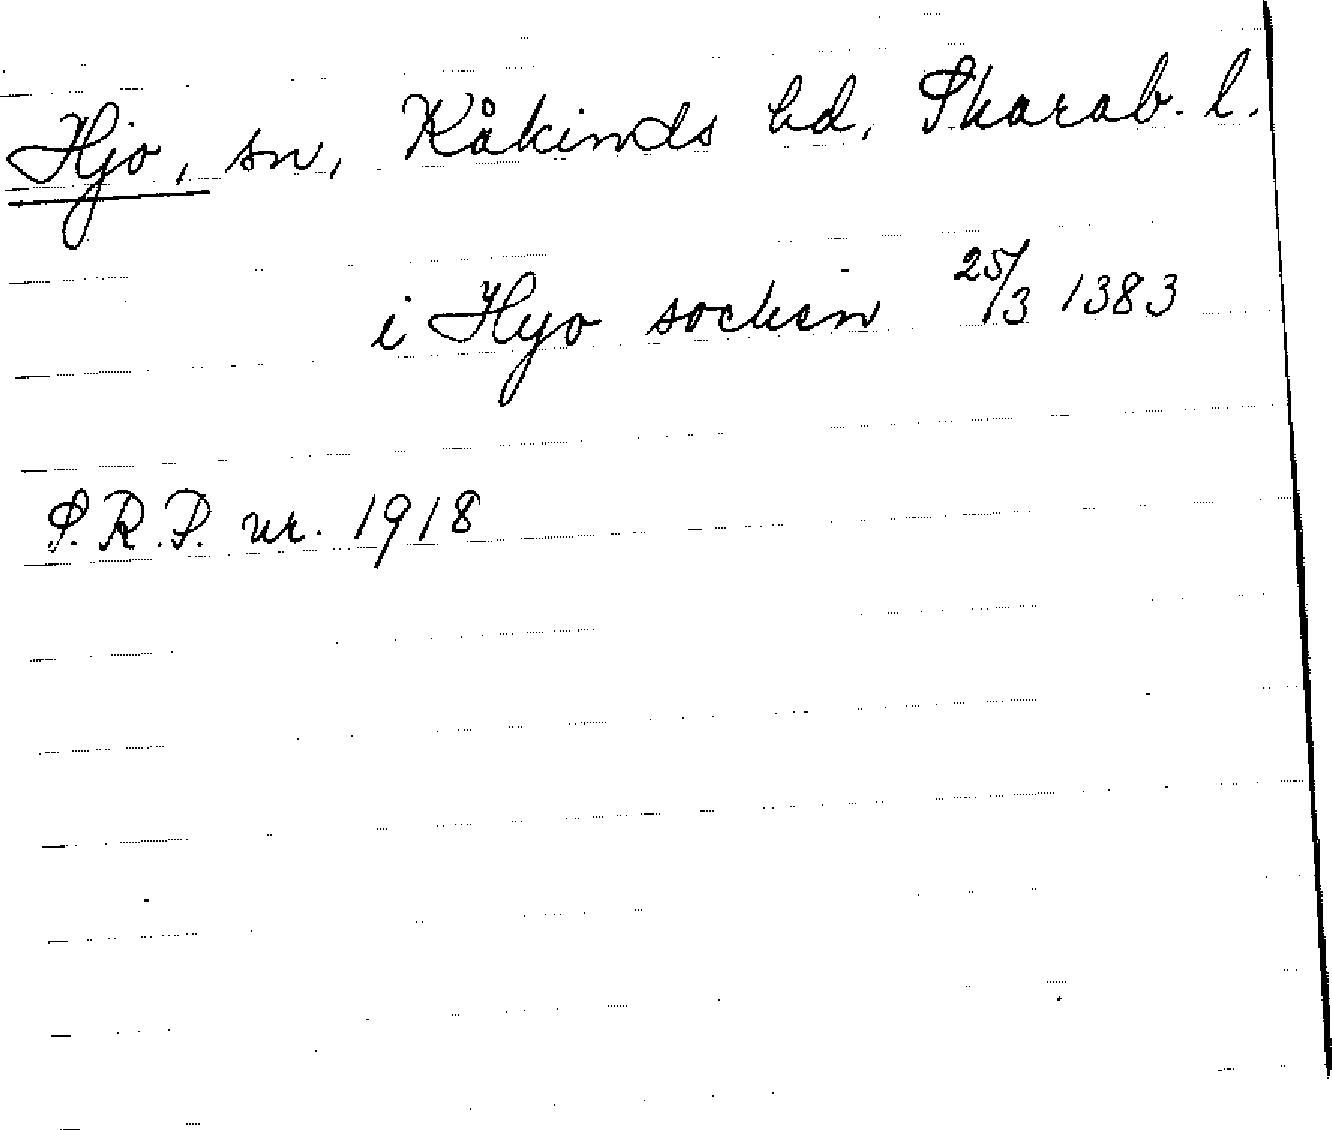 Hjo, sn, Kåkinds hd, Skarab. l.
i Hyo socken 25/3 1383
S.R.P. nr. 1918